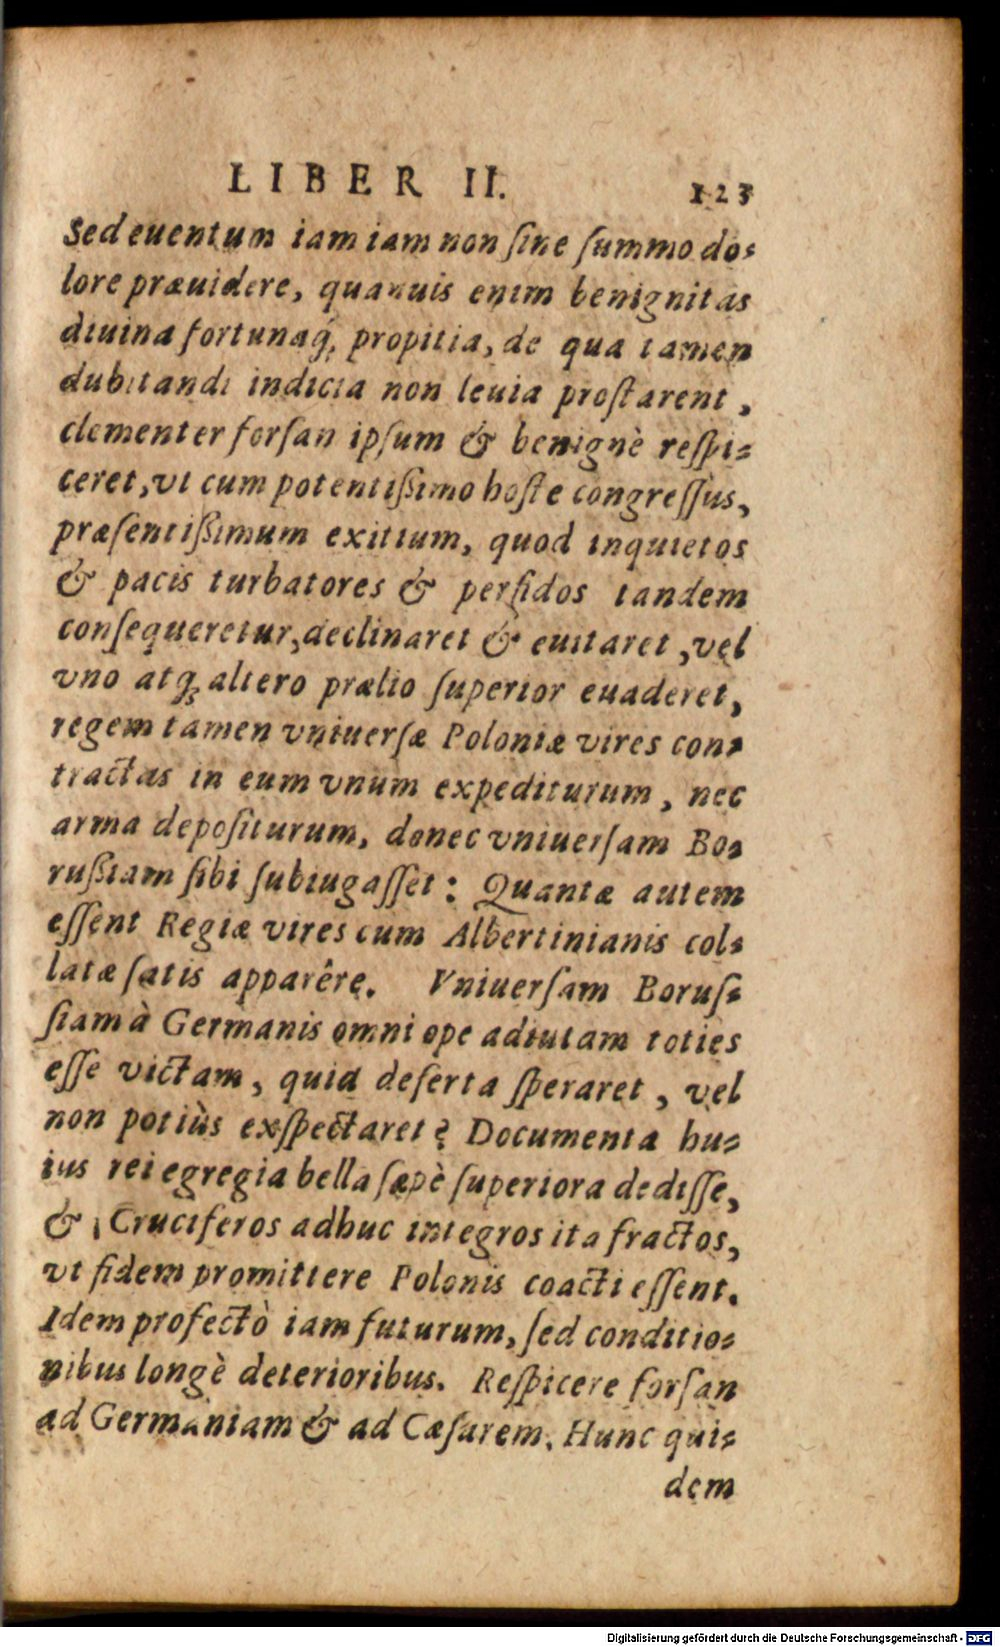 LIBER II. 123
Sed euentum iam iam non ſine ſummo do-
lore præuidere, quanuis enim benignitas
diuina fortunaq́; propitia, de qua tamen
dubitandi indicia non leuia proſtarent,
clementer forſan ipſum & benignè reſpi-
ceret, vt cum potentißimo hoſte congreſſus,
præſentißimum exitium, quod inquietos
& pacis turbatores & perfidos tandem
conſequeretur, declinaret & euitaret, vel
vno atq; altero prælio ſuperior euaderet,
regem tamen vniuerſæ Poloniæ vires con-
tractas in eum vnum expediturum, nec
arma depoſiturum, donec vniuerſam Bo-
rußiam ſibi ſubiugaſſet: Quantæ autem
eſſent Regiæ vires cum Albertinianis col-
latæ ſatis apparêre. Vniuerſam Boruſ-
ſiam à Germanis omni ope adiutam toties
eſſe victam, quid deſerta ſperaret, vel
non potiùs exſpectaret? Documenta hu-
ius rei egregia bella ſæpè ſuperiora dediſſe,
& Cruciferos adhuc integros ita fractos,
vt fidem promittere Polonis coacti eſſent.
Idem profectò iam futurum, ſed conditio-
nibus longè deterioribus. Reſpicere forſan
ad Germaniam & ad Cæſarem. Hunc qui-
dem
Digitalisierung gefördert durch die Deutsche Forschungsgemeinschaft - DFG